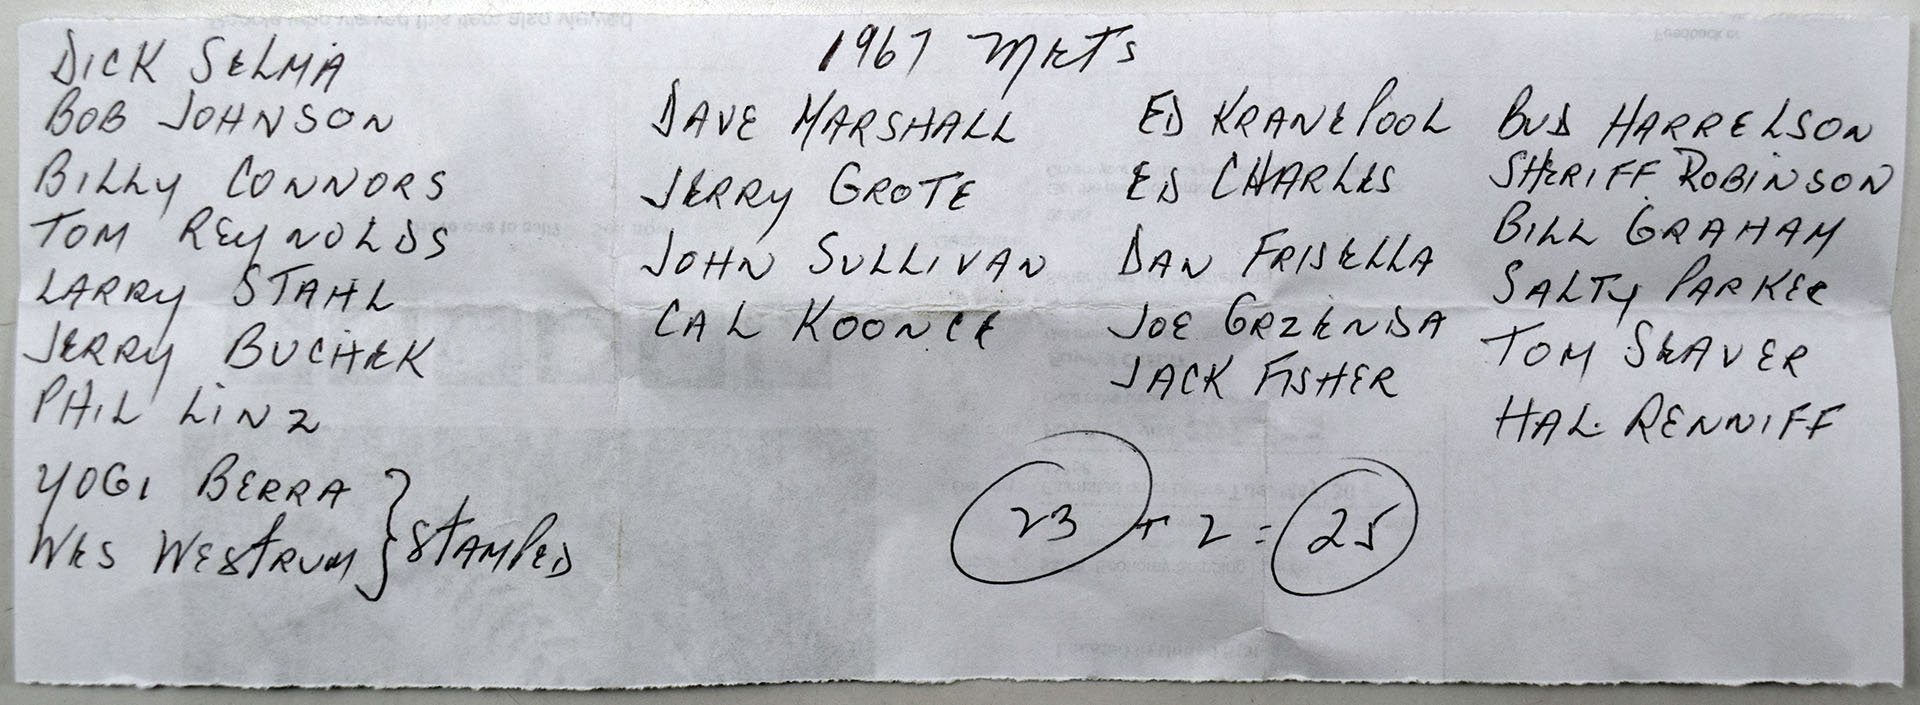 1967 METS
DICK SELMA
BOB JOHNSON
BILLY CONNORS
TOM REYNOLDS
LARRY STAHL
JERRY BUCHEK
PHIL LINZ
YOGI BERRA
WES WESTRUM } STAMPED
DAVE MARSHALL
JERRY GROTE
JOHN SULLIVAN
CAL KOONCE
ED KRANEPOOL
ED CHARLES
DAN FRISELLA
JOE GRZENDA
JACK FISHER
BUD HARRELSON
SHERIFF ROBINSON
BILL GRAHAM
SALTY PARKER
TOM SEAVER
HAL RENNIFF
23 + 2 = 25